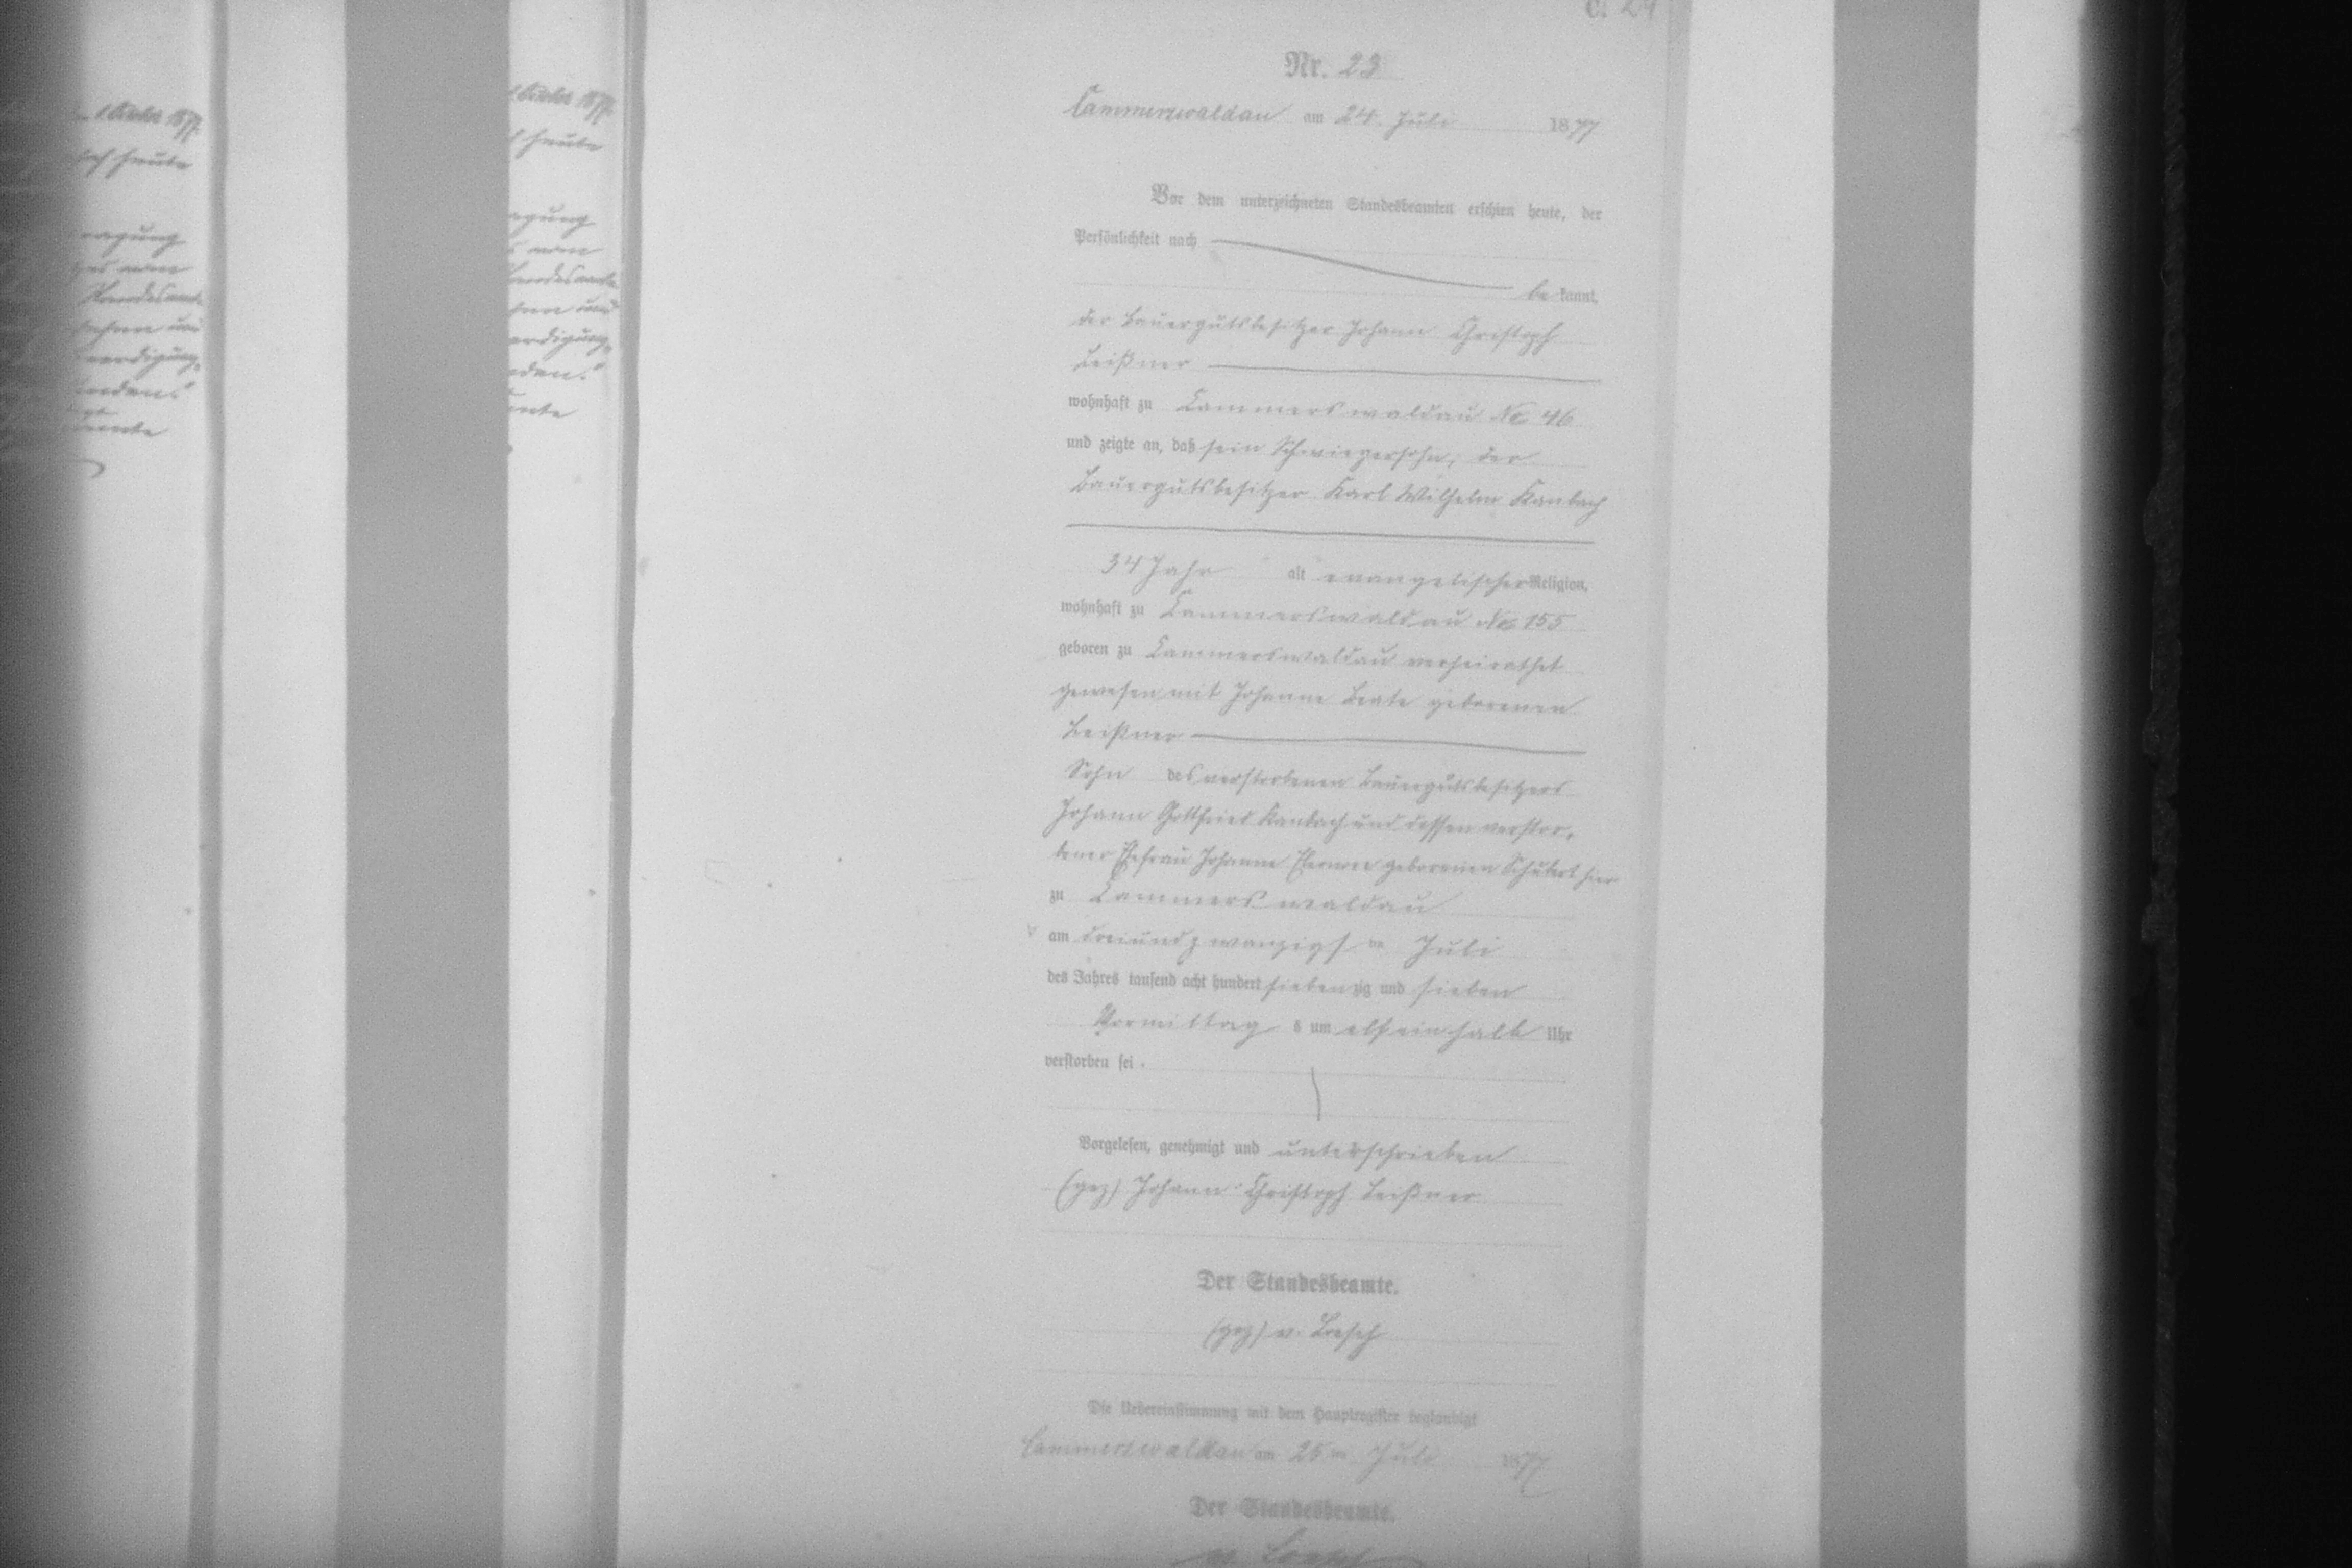 C. 24
Nr. 23
Cammerswaldau am 24. Juli 1877
Vor dem unterzeichneten Standesbeamten erschien heute, der
Persönlichkeit nach
be kannt,
der Bauergutsbesitzer Johann Christoph
Beißner
wohnhaft zu Cammerswaldau No 46
und zeigte an, daß sein Schwiegersohn, der
Bauergutsbesitzer Karl Wilhelm Kambach
34 Jahr alt evangelischer Religion,
wohnhaft zu Cammerswaldau No 155
geboren zu Cammerswaldau verheirathet
gewesen mit Johanne Beate geborenen
Beißner
Sohn des verstorbenen Bauergutsbesitzers
Johann Gottfried Kambach und dessen verstor-
bener Ehefrau Johanne Eleonore geborenen Schubert hier
zu Cammerswaldau
am dreiundzwanzigsten Juli
des Jahres tausend acht hundert siebenzig und sieben
Vormittags um elfeinhalb Uhr
verstorben sei.
Vorgelesen, genehmigt und unterschrieben
(gez) Johann Christoph Beißner
Der Standesbeamte.
(gez) v.
Die Uebereinstimmung mit dem Hauptregister beglaubigt
Cammerswaldau am 25 ten Juli 1877
Der Standesbeamte.
v.